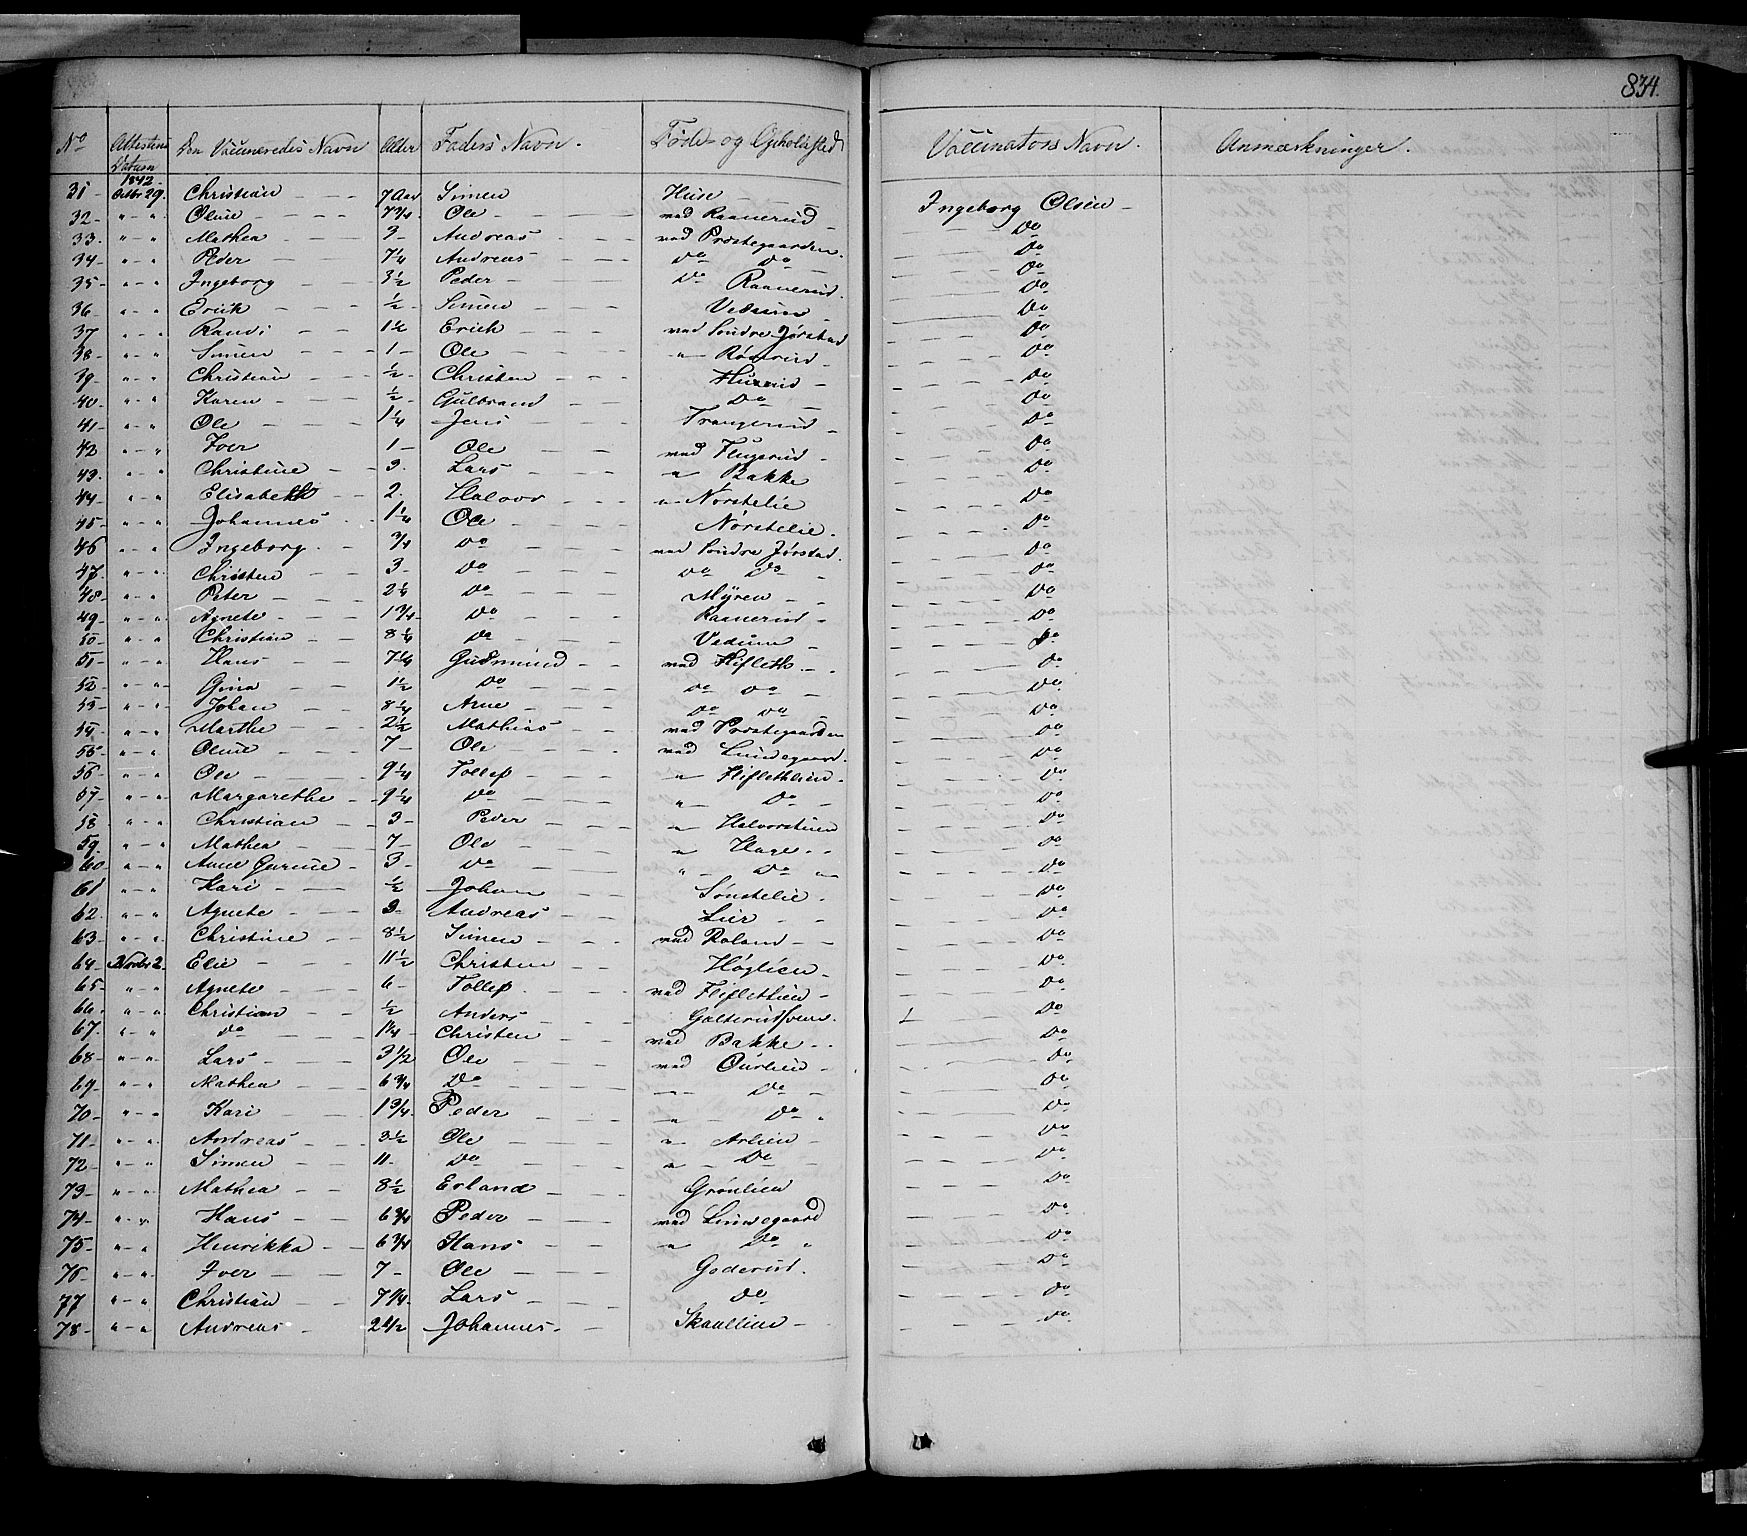 834.
No Attestens Datum Den Vaccineredes Navn Alder Faders Navn. Føde- og Opholdssted Vaccinators Navn. Anmærkninger.
1842
31 - Octbr 29. Christian 7 Aar Simen Huse Ingeborg Olsen -
32 - " - " Oline 7 3/4 Ole ved Raanerud Do
33. " - " Mathea 3 - Andreas ved Præstegaarden Do
34 - " - " Peder 7 1/4 Andreas Do Do Do
35 - " - " Ingeborg 3 1/2 Peder Do Raanerud. Do
36 " - " Erick 1/2 Simen Vedum Do
37 " - " Randi 1 1/2 Erick ved Søndre Jørstad Do
38 - " - " Simen 1 - Ole " Do
39 - " - " Christian 1/2 Christen Do
40 - " - " Karen 1/2 Gulbrand Do Do
41 - " - " Ole 1 1/4 Jens Trangerud Do
42 " - " Iver 1 - Ole ved Do
43. " - " Christine 3. Lars " Bakke Do
44 - " - " Elisabeth 2. Halvor " Norstelie Do
45 - " - " Johannes 1 1/4 Ole Norstelie. Do
46 " - " Ingeborg 3/4 Do ved Søndre Jørstad. Do
47. " - " Christen 3 - Do Do Do Do
48 - " - " Peter 2 1/4 Do Myren Do
49 - " - " Agnete 1 3/4 Do Raanerud Do
50 - " - " Christian 8 1/4 Do Vedum Do
51 - " - " Hans 7 1/4 Gudmund ved Flifleth Do
52 - " - " Gina 1 1/2 Do Do Do Do
53 - " - " Johan 8 1/4 Arne Do Do Do
54 - " - " Marthe 2 1/2 Mathias ved Præstegaarden Do
55 - " - " Oline 7 - Ole ved Lundegaard. Do
56 " - " Ole 9 1/4 Tollef " Fliflethlien Do
57 - " - " Margarethe 9 1/4 Do " Do Do
58 " - " Christian 3 - Peder " Halvorstuen Do
59. " - " Mathea 7 - Ole " Hage Do
60 - " - " Anne Gurine 3 - Do " Do Do
61 " - " Kari 1/2 Johan Sønstelie. Do
62. " - " Agnete 3 - Andreas Lier Do
63 - " - " Christine 8 1/2 Simen ved Do
64 - Novbr 2. Elie 11 1/2 Christen Høglien Do
65 - " - " Agnete 6 - Tollef ved Fliflethlien Do
66. " - " Christian 1/2 Anders Do
67. " - " Do 1 1/4 Christen ved Bakke Do
68 - " - " Lars 3 1/2 Ole ved Do
69 - " - " Mathea 6 3/4 Do Do Do
70 - " - " Kari 1 3/4 Peder " Do Do
71 - " - " Andreas 3 1/2 Ole " Do
72 - " - " Simen 11 - Do " Do Do
73 - " - " Mathea 8 1/2 Erland Grønlien Do
74 - " - " Hans 6 3/4 Peder ved Lundegaard Do
75 - " - " Henrikka 6 3/4 Hans " Do Do
76 - " - " Iver 7 - Ole Goderud. Do
77 - " - " Christian 7 3/4 Lars Do Do
78 - " - " Andreas 2 1/2 Johannes. Skaullien Do